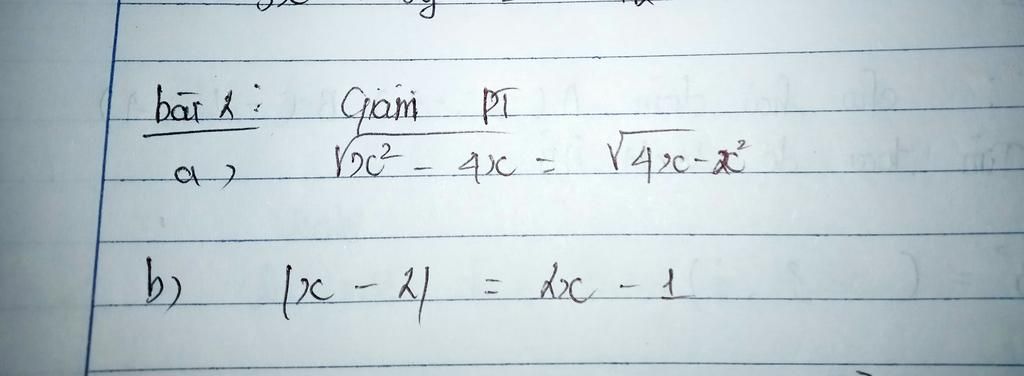 bài 2: Giải PT
a) √x² - 4x = √4x - x²
b) |x - 2| = 2x - 1